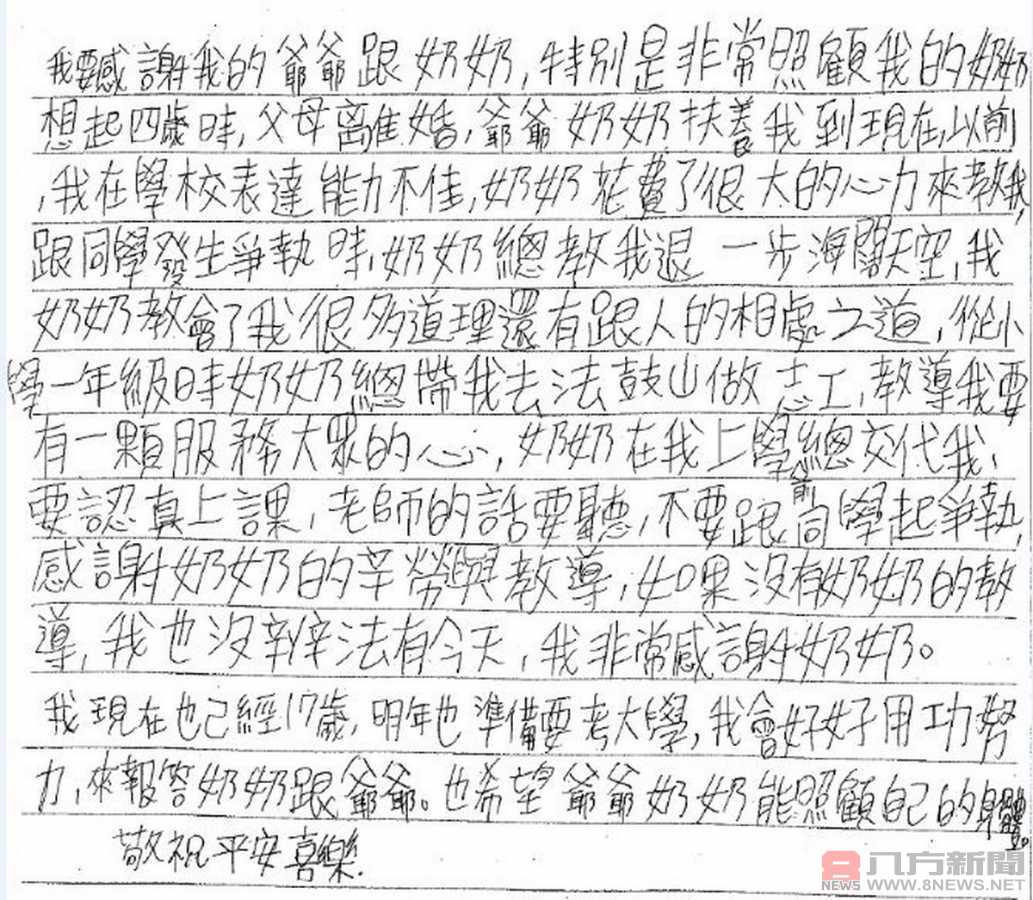 我要感謝我的爺爺跟奶奶,特別是非常照顧我的奶奶
想起四歲時,父母離婚,爺爺奶奶扶養我到現在,以前
,我在學校表達能力不佳,奶奶花費了很大的心力來教我,
跟同學發生爭執時,奶奶總教我退一步海闊天空,我
奶奶教會了我很多道理還有跟人的相處之道,從小
學一年級時奶奶總帶我去法鼓山做志工,教導我要
有一顆服務大眾的心,奶奶在我上學前總交代我、
要認真上課,老師的話要聽,不要跟同學起爭執,
感謝奶奶的辛勞與教導,如果沒有奶奶的教
導,我也沒辦法有今天,我非常感謝奶奶。
我現在也已經17歲,明年也準備要考大學,我會好好用功努
力,來報答奶奶跟爺爺。也希望爺爺奶奶能照顧自己的身體。
敬祝平安喜樂.
8 NEWS 八方新聞
WWW.8NEWS.NET